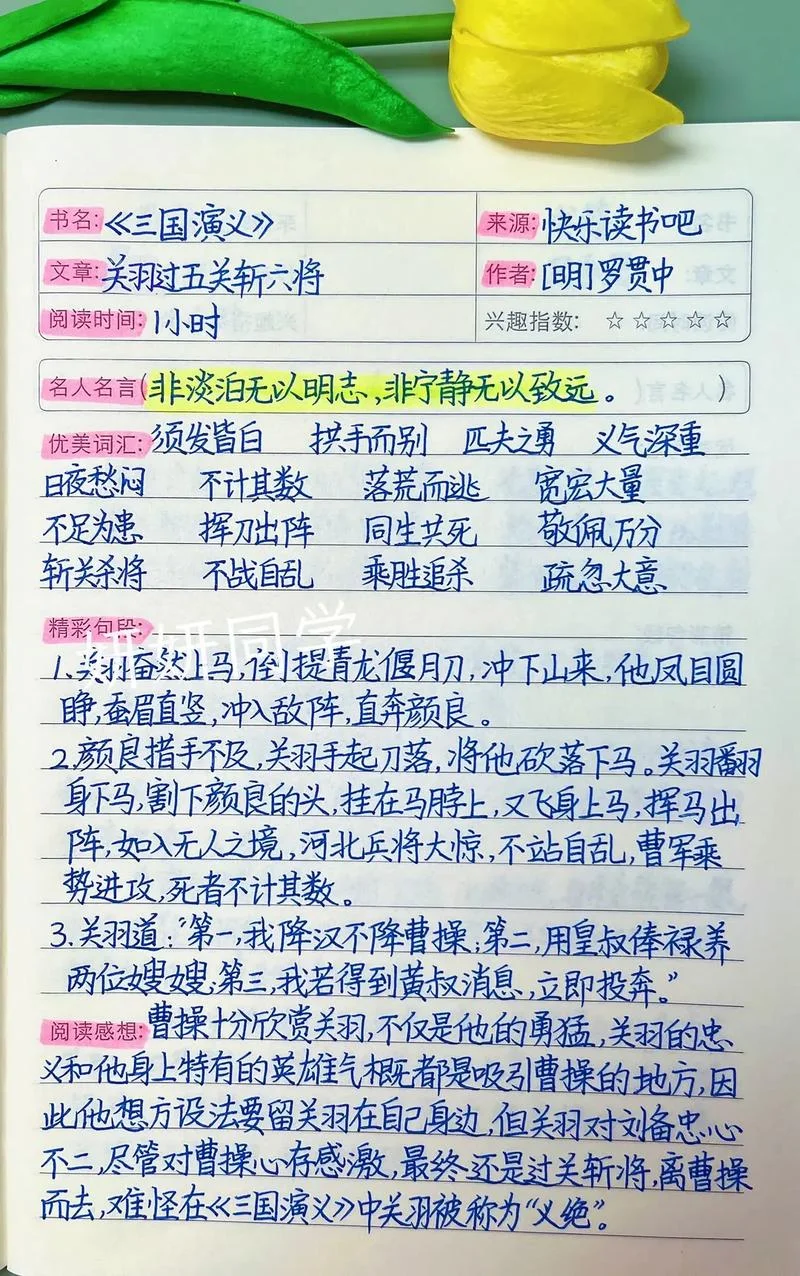 书名:《三国演义》 来源:快乐读书吧
文章:关羽过五关斩六将 作者:[明]罗贯中
阅读时间:1小时 兴趣指数: ☆☆☆☆☆
名人名言(非淡泊无以明志,非宁静无以致远。)
优美词汇:须发皆白 拱手而别 匹夫之勇 义气深重
日夜愁闷 不计其数 落荒而逃 宽宏大量
不足为患 挥刀出阵 同生共死 敬佩万分
斩关杀将 不战自乱 乘胜追杀 疏忽大意
精彩句段:
妍妍同学
1.关羽奋然上马,倒提青龙偃月刀,冲下山来,他凤目圆
睁,蚕眉直竖,冲入敌阵,直奔颜良。
2.颜良措手不及,关羽手起刀落,将他砍落下马。关羽翻
身下马,割下颜良的头,挂在马脖上,又飞身上马,挥马出
阵,如入无人之境,河北兵将大惊,不站自乱,曹军乘
势进攻,死者不计其数。
3.关羽道:“第一,我降汉不降曹操;第二,用皇叔俸禄养
两位嫂嫂;第三,我若得到黄叔消息,立即投奔。”
阅读感想:曹操十分欣赏关羽,不仅是他的勇猛,关羽的忠
义和他身上特有的英雄气概都是吸引曹操的地方,因
此他想方设法要留关羽在自己身边,但关羽对刘备忠心
不二,尽管对曹操心存感激,最终还是过关斩将,离曹操
而去,难怪在《三国演义》中关羽被称为“义绝”。